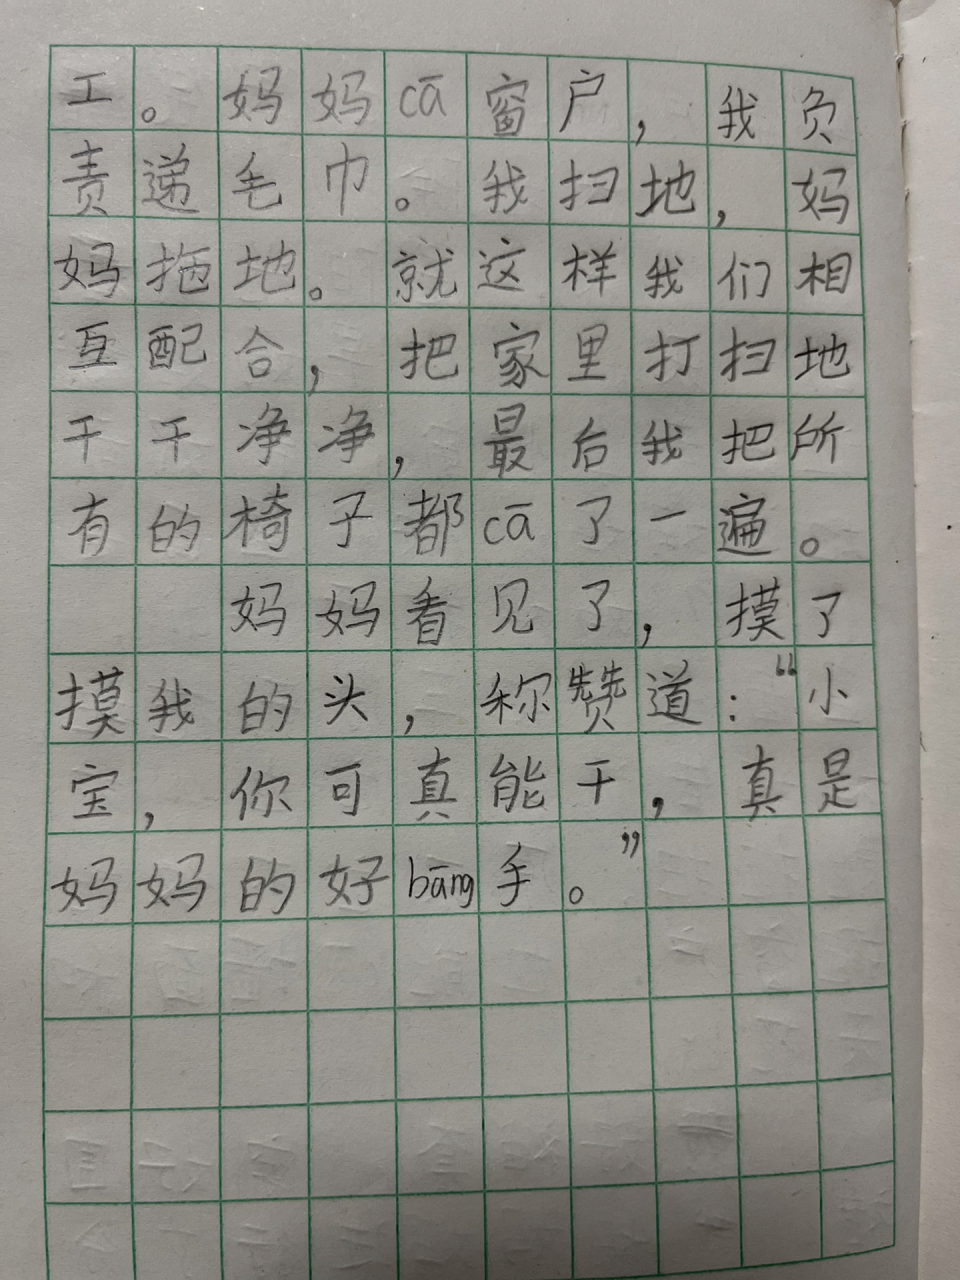 工。妈妈cā窗户，我负
责递毛巾。我扫地，妈
妈拖地。就这样我们相
互配合，把家里打扫地
干干净净，最后我把所
有的椅子都cā了一遍。
妈妈看见了，摸了
摸我的头，称赞道：“小
宝，你可真能干，真是
妈妈的好bāng手。”